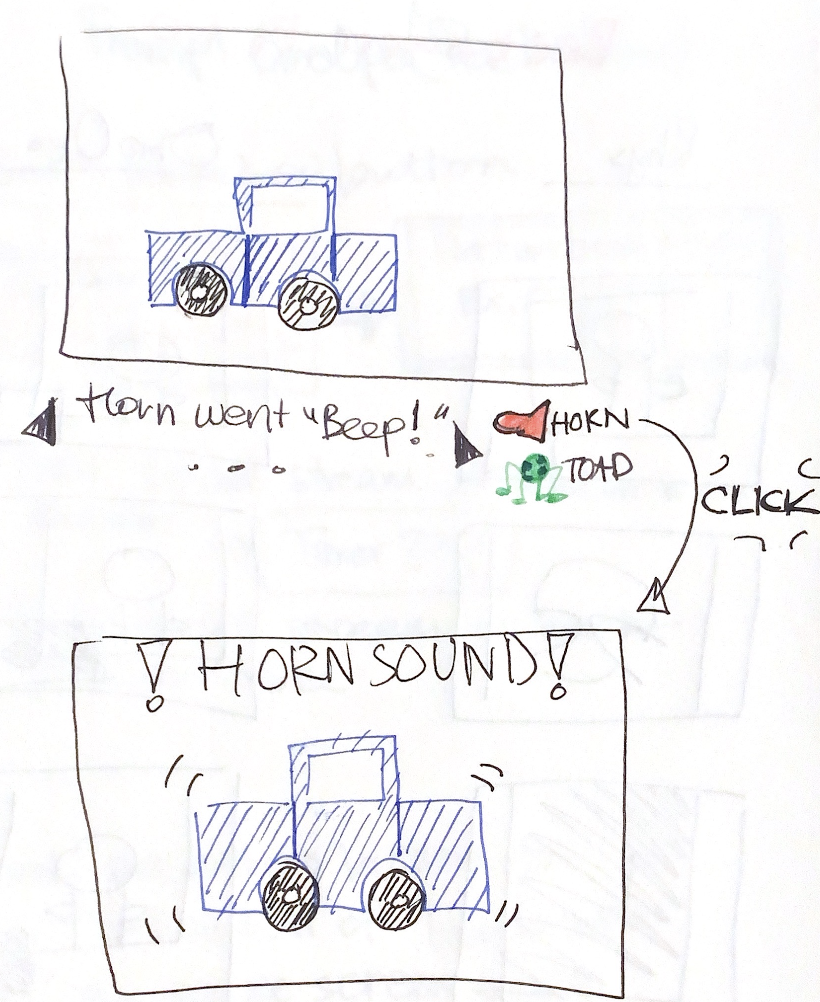 Horn went "Beep!"
HORN
TOAD
CLICK
! HORN SOUND !